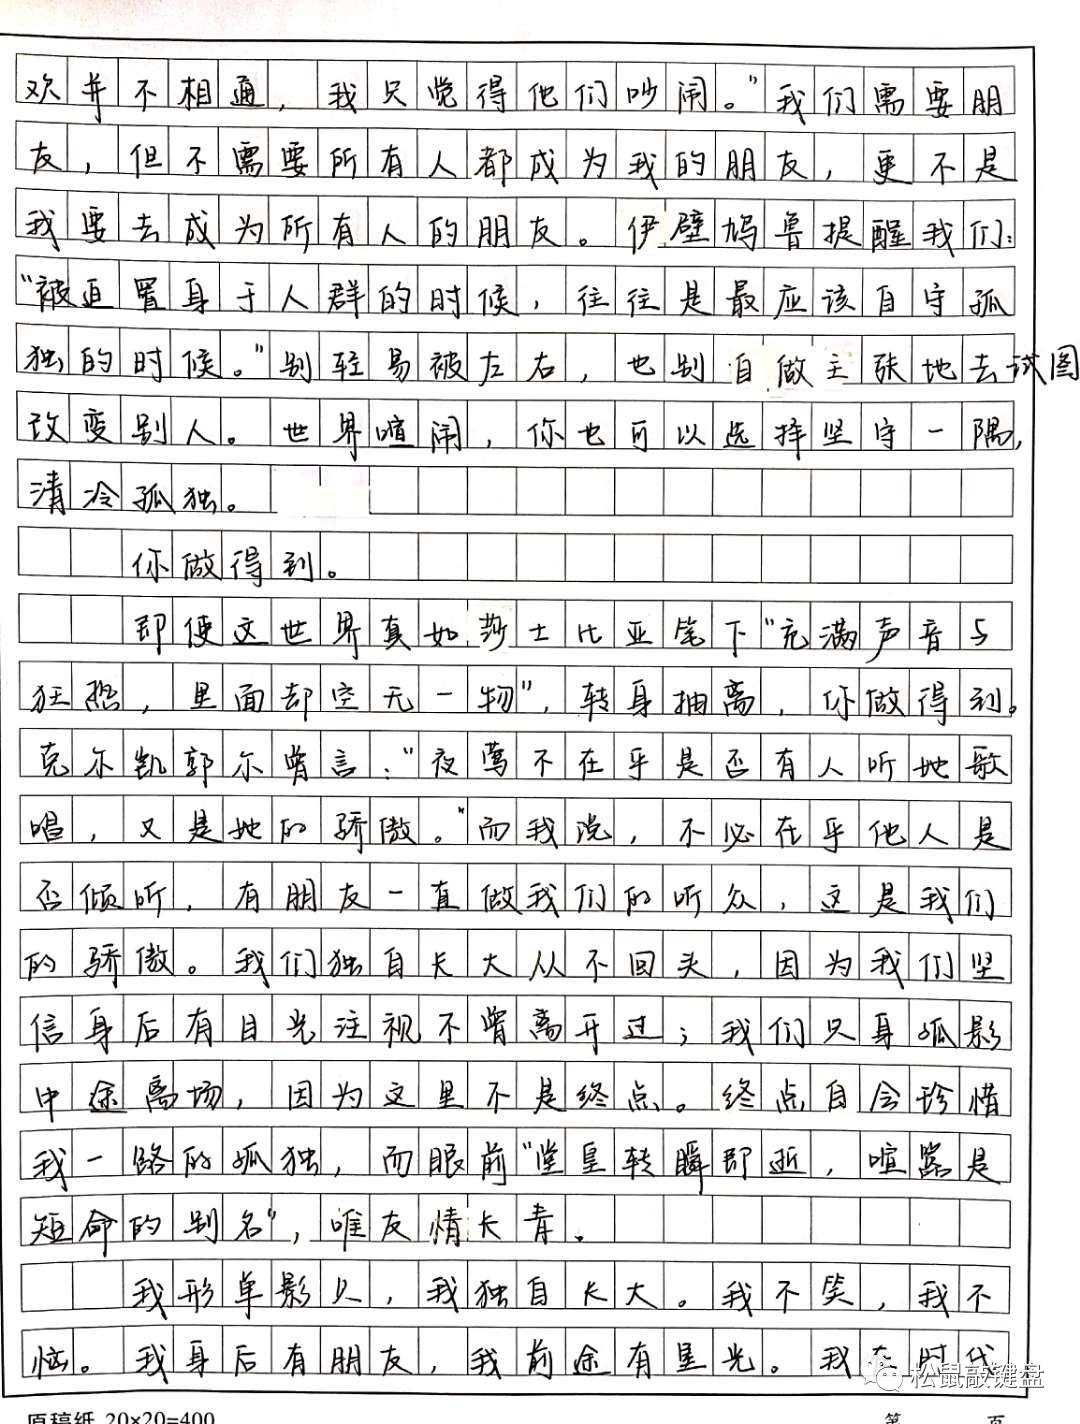 欢并不相通，我只觉得他们吵闹。"我们需要朋
友，但不需要所有人都成为我的朋友，更不是
我要去成为所有人的朋友。伊壁鸠鲁提醒我们：
"被迫置身于人群的时候，往往是最应该自守孤
独的时候。"别轻易被左右，也别自做主张地去试图
改变别人。世界喧闹，你也可以选择坚守一隅，
清冷孤独。
你做得到。
即使这世界真如莎士比亚笔下"充满声音与
狂热，里面却空无一物"，转身抽离，你做得到。
克尔凯郭尔曾言："夜莺不在乎是否有人听她歌
唱，又是她的骄傲。"而我说，不必在乎他人是
否倾听，有朋友一直做我们的听众，这是我们
的骄傲。我们独自长大从不回头，因为我们坚
信身后有目光注视不曾离开过；我们只身孤影
中途离场，因为这里不是终点。终点自会珍惜
我一路的孤独，而眼前"堂皇转瞬即逝，喧嚣是
短命的别名"，唯友情长青。
我形单影只，我独自长大。我不笑，我不
恼。我身后有朋友，我前途有星光。我在时代
松鼠敲键盘
原稿纸 20×20=400 第 页